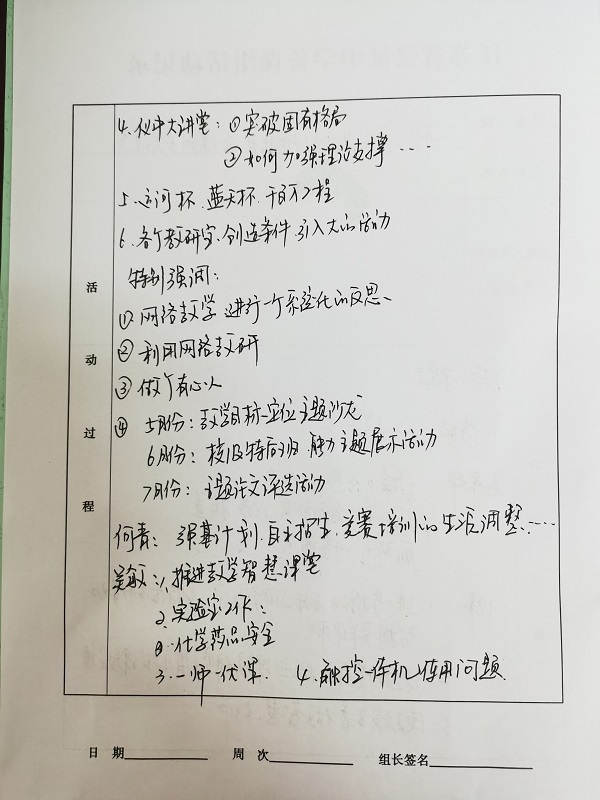 4. 仪中大讲堂：① 突破固有格局
② 如何加强理论支撑……
5. 运河杯、蓝天杯、千百万工程
6. 各个教研室、创造条件、引入大的活动
特别强调：
① 网络教学 进行一个系统化的反思、
② 利用网络教研
③ 做个有心人
④ 5月份：教学目标定位主题沙龙
6月份：特后班、主题展示活动
7月份：主题论文评选活动
何青：强基计划、自主招生、竞赛培训的生涯调整……
吴敏：1、推进教学智慧课堂
2、实验室工作：
⊙ 化学药品安全
3. 一师一优课. 4. 触控一体机使用问题.
活动过程
日 期 周 次 组长签名